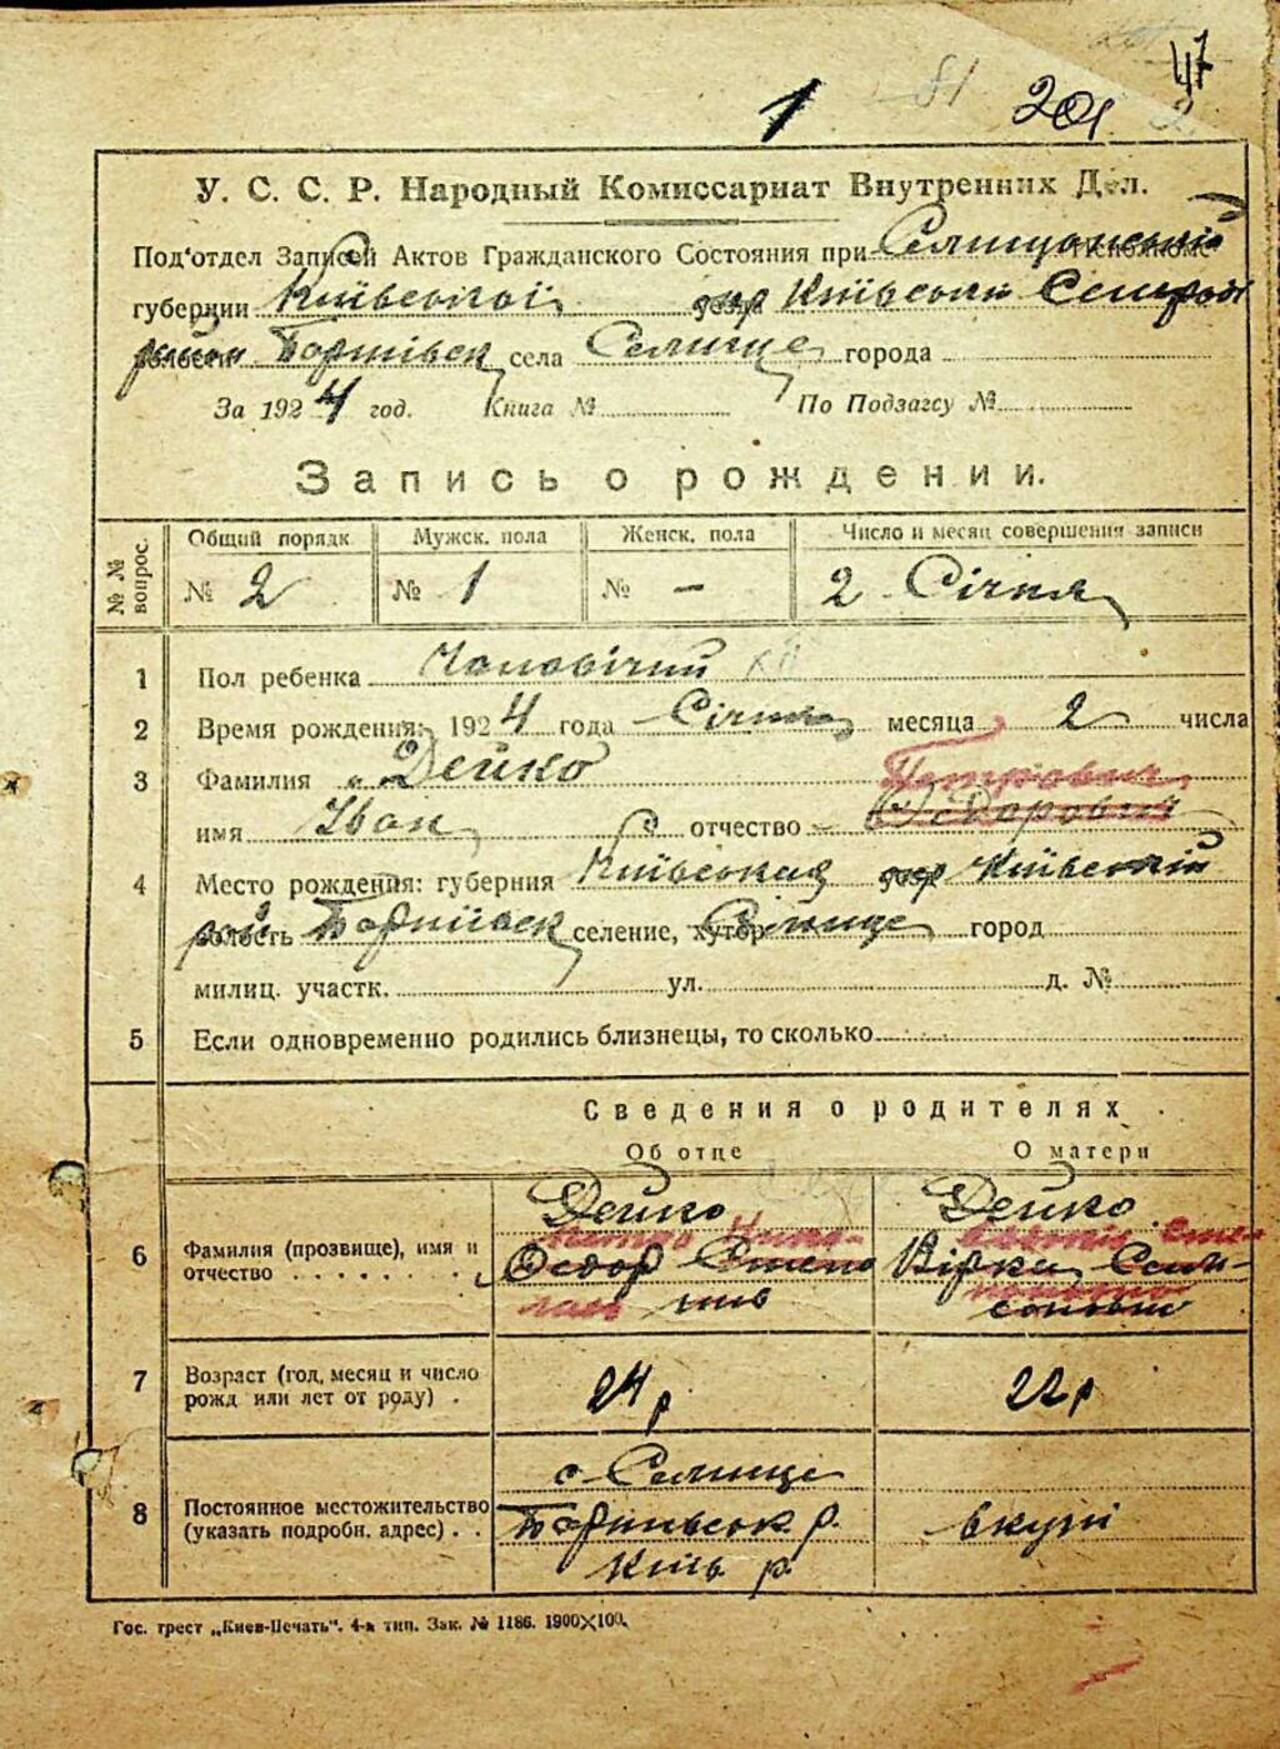 1 201 47
У. С. С. Р. Народный Комиссариат Внутренних Дел.
Под'отдел Записей Актов Гражданского Состояния при
губернии Київської окр Київськ
район Баришівськ села Селище города
За 1924 год. Книга № По Подзагсу №
Запись о рождении.
№ № вопрос. Общий порядк Мужск. пола Женск. пола Число и месяц совершения записи
№ 2 № 1 № - 2 Січня
1 Пол ребенка Чоловічий
2 Время рождения: 1924 года Січня месяца 2 числа
3 Фамилия Дейко Петрович
имя Іван отчество Федорович
4 Место рождения: губерния Київська окр Київській
волость рай селение, хутор Селище город
милиц. участк. ул. д. №
5 Если одновременно родились близнецы, то сколько
Сведения о родителях
Об отце О матери
Дейко Дейко
6 Фамилия (прозвище), имя и отчество Федор Степа Вірка Сам-
нив соновна
7 Возраст (год, месяц и число рожд или лет от роду) . 24 р 22 р
с. Селище
8 Постоянное местожительство (указать подробн. адрес) . . р. вкупі
Київ р.
Гос. трест „Киев-Печать". 4-я тип. Зак. № 1186. 1900×100.